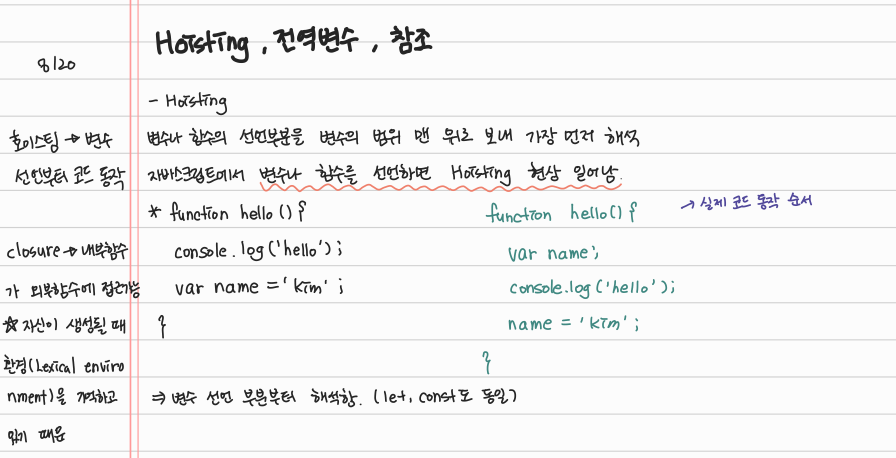 Hoisting, 전역변수, 참조
8/20
- Hoisting
호이스팅 → 변수
변수나 함수의 선언부분을 변수의 범위 맨 위로 보내 가장 먼저 해석
선언부터 코드 동작
자바스크립트에서 변수나 함수를 선언하면 Hoisting 현상 일어남.
* function hello () {
function hello() {
→ 실제 코드 동작 순서
closure → 내부함수
console.log('hello');
var name;
가 외부함수에 접근가능
var name = 'kim';
console.log('hello');
☆ 자신이 생성될 때
}
name = 'kim';
환경(Lexical enviro
}
nment)을 기억하고
⇒ 변수 선언 부분부터 해석함. (let, const도 동일)
있기 때문